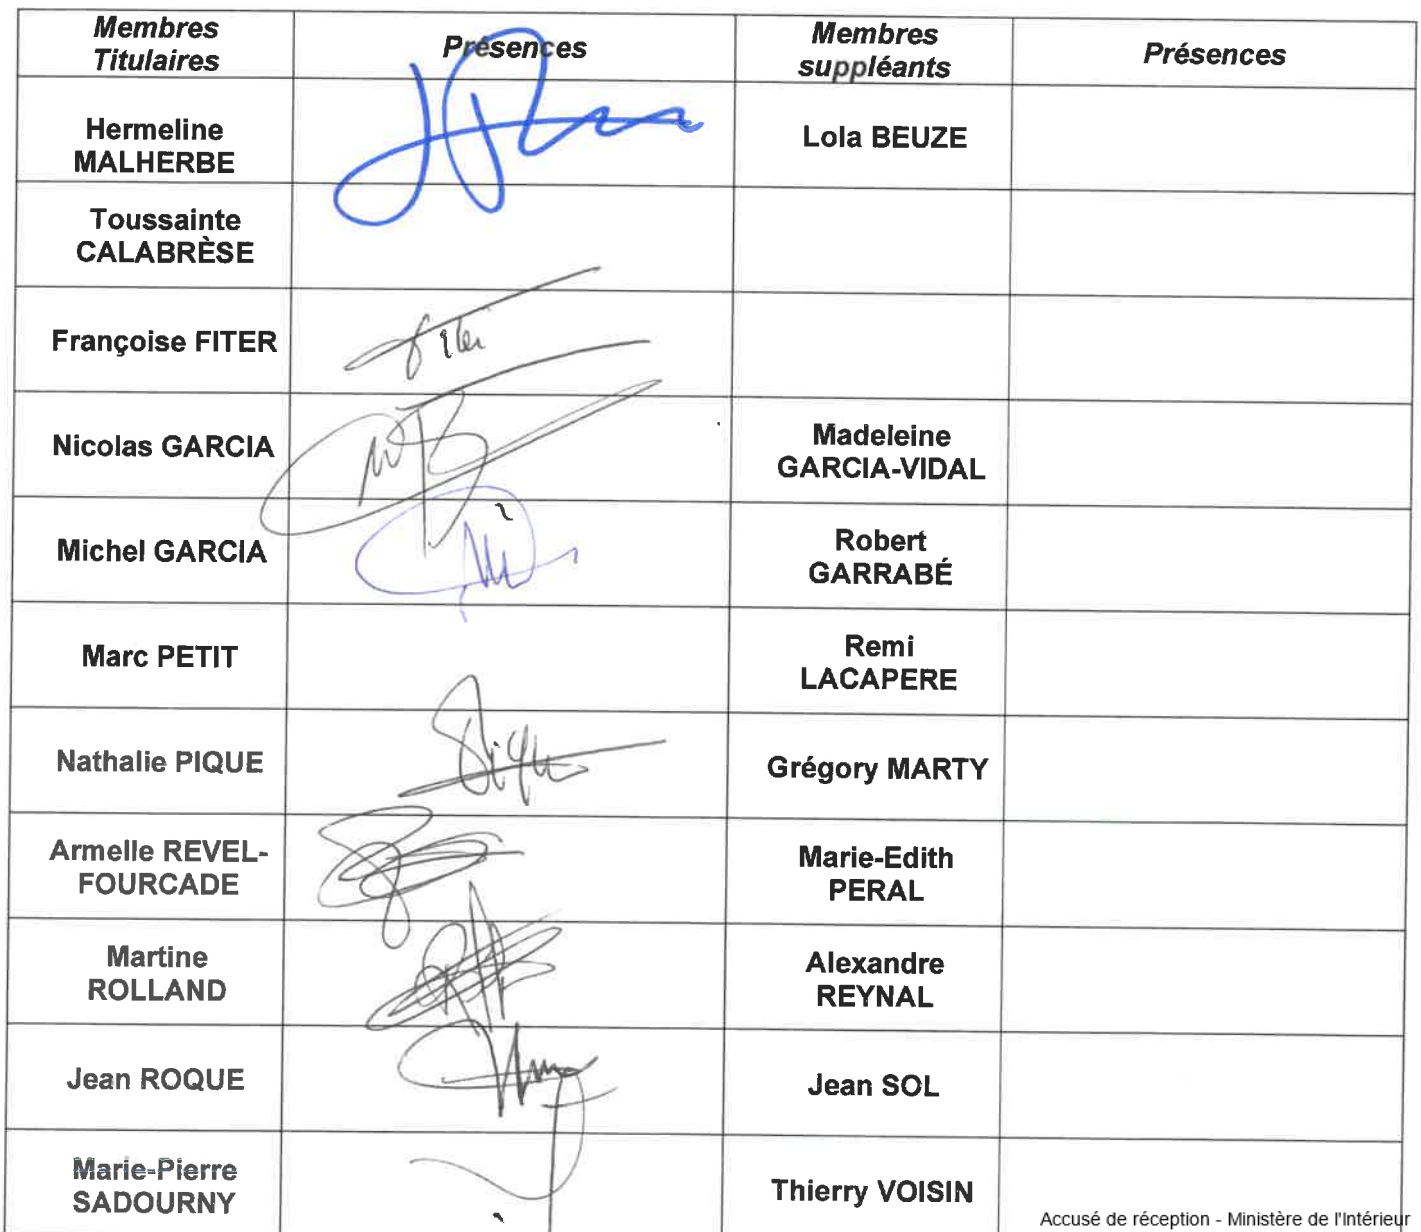 Membres
Titulaires
Présences
Membres
suppléants
Présences
Hermeline
MALHERBE
Lola BEUZE
Toussainte
CALABRÈSE
Françoise FITER
Fiter
Nicolas GARCIA
Madeleine
GARCIA-VIDAL
Michel GARCIA
Robert
GARRABÉ
Marc PETIT
Remi
LACAPERE
Nathalie PIQUE
Grégory MARTY
Armelle REVEL-
FOURCADE
Marie-Edith
PERAL
Martine
ROLLAND
Alexandre
REYNAL
Jean ROQUE
Jean SOL
Marie-Pierre
SADOURNY
Thierry VOISIN
Accusé de réception - Ministère de l'Intérieur